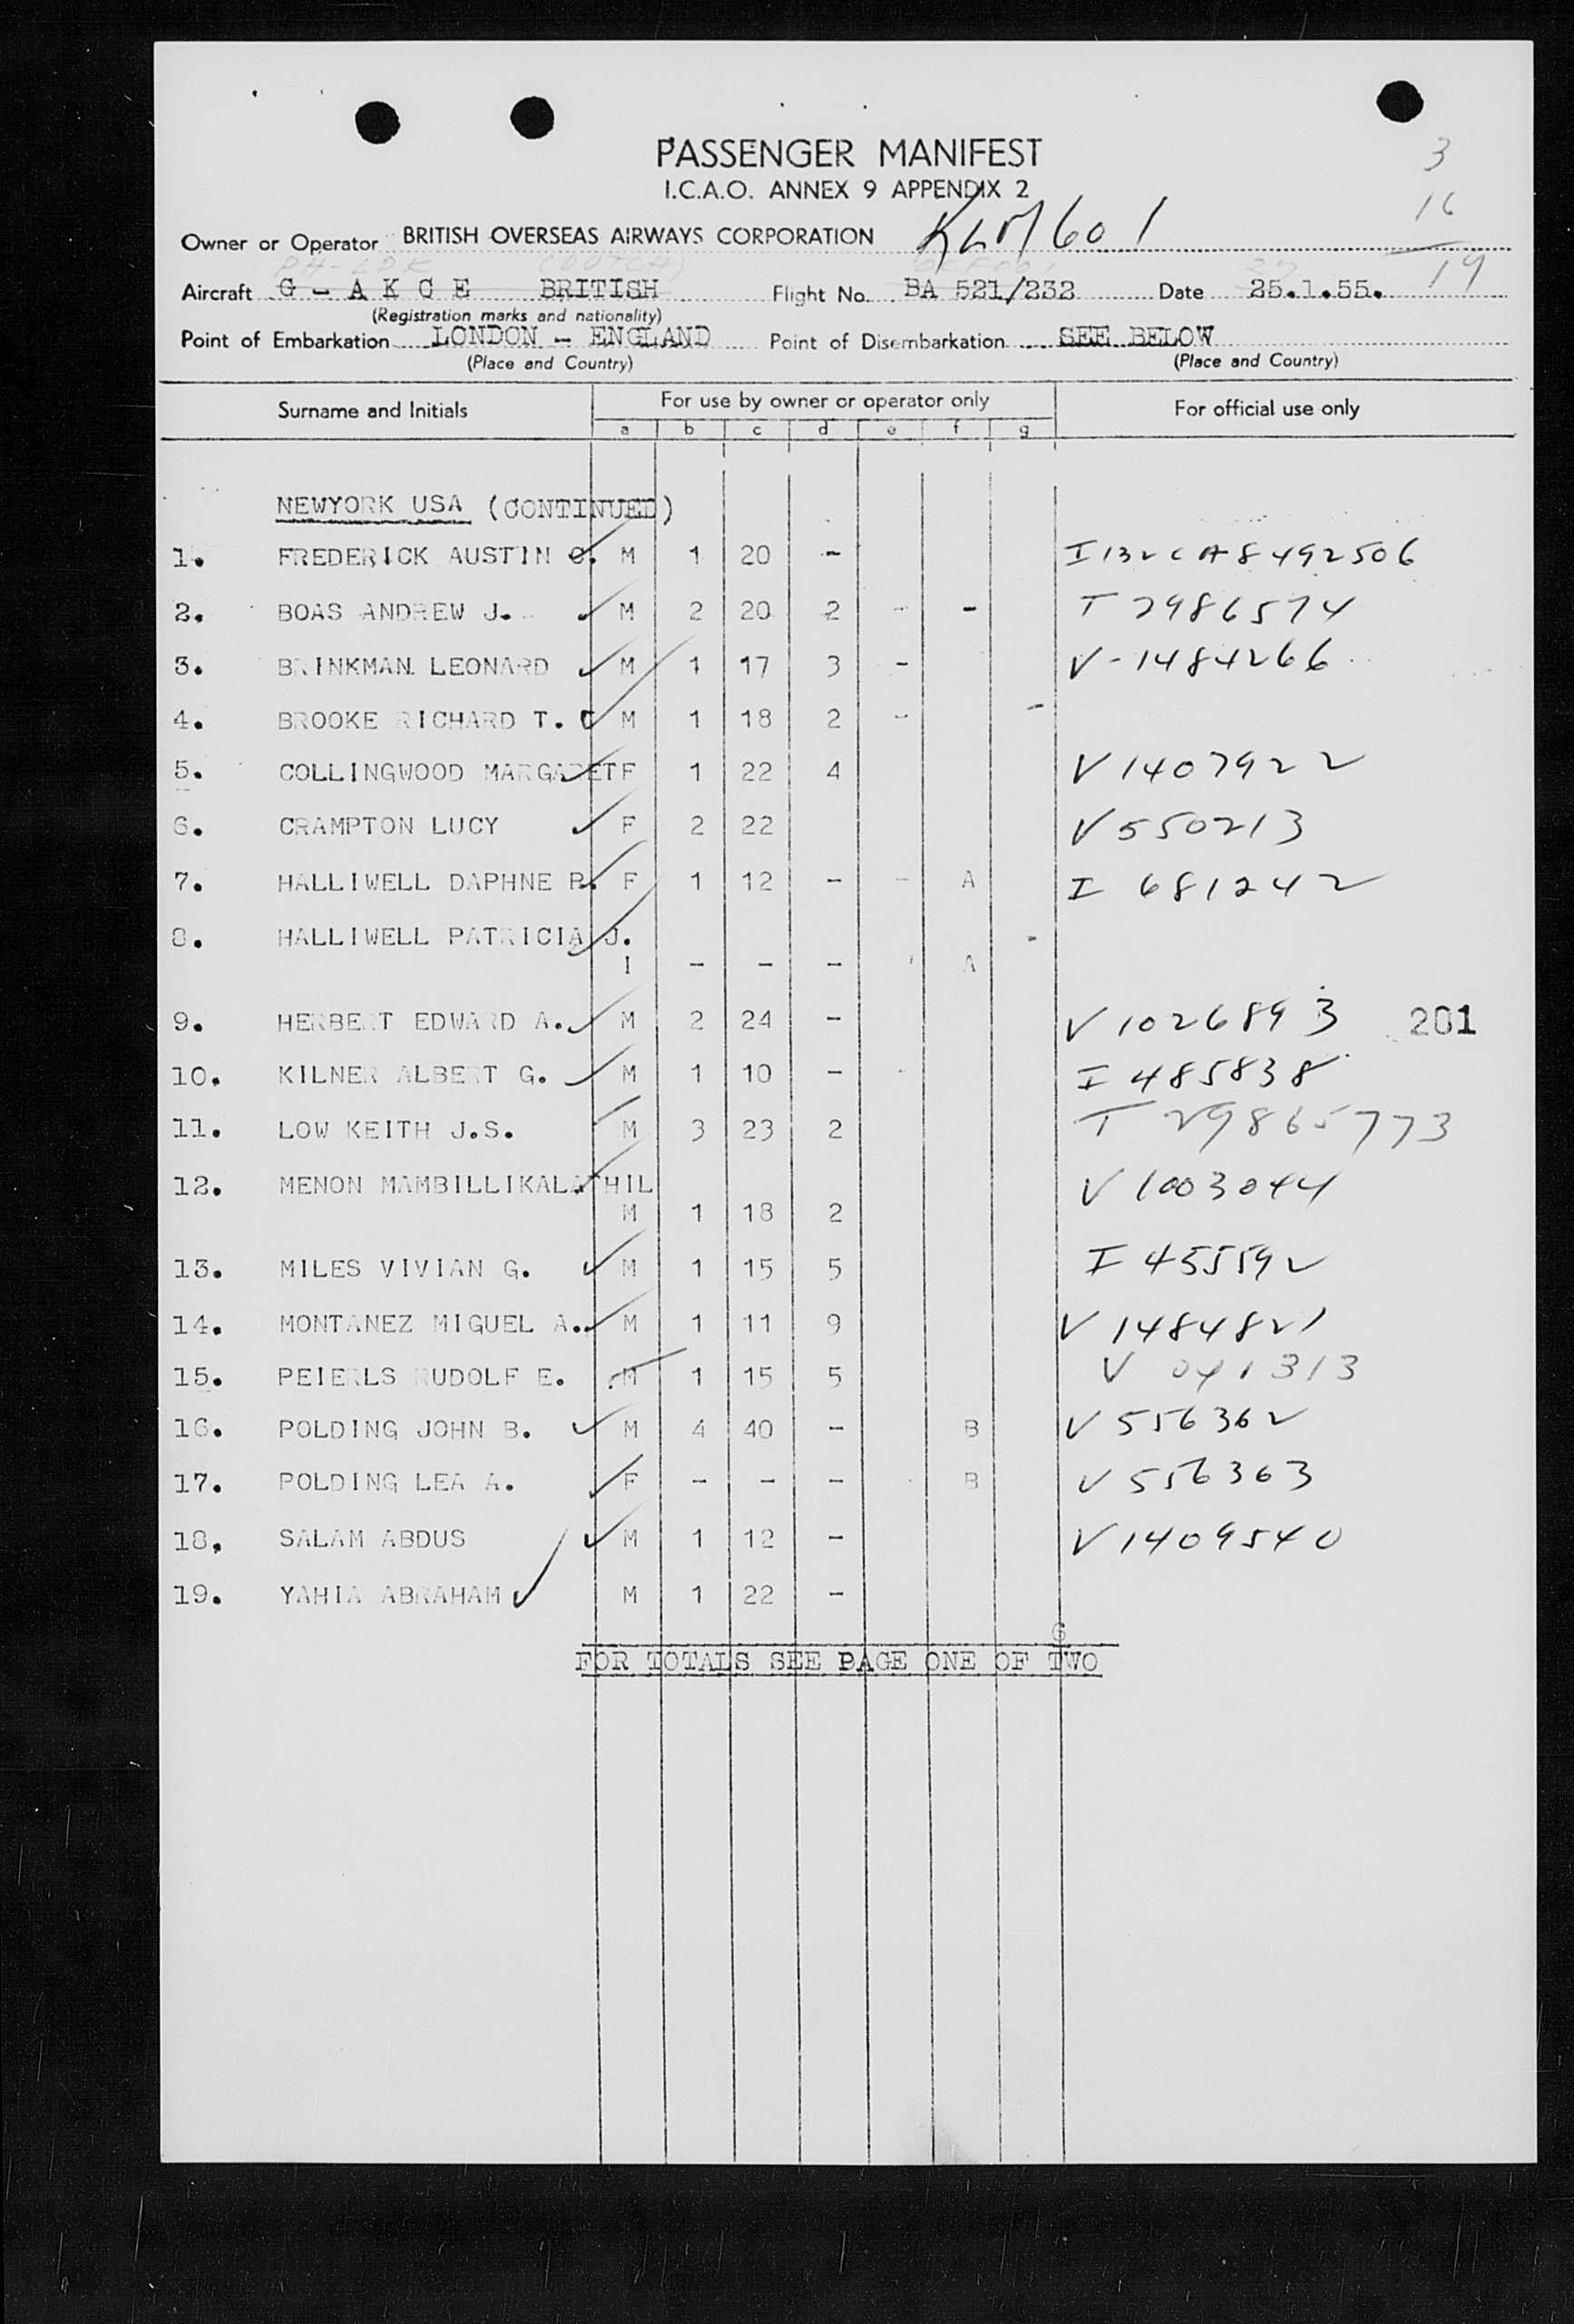 PASSENGER MANIFEST
I.C.A.O. ANNEX 9 APPENDIX 2
3
16
19
Owner or Operator BRITISH OVERSEAS AIRWAYS CORPORATION KLM 601
Aircraft G - A K C E BRITISH Flight No. BA 521/232 Date 25.1.55.
(Registration marks and nationality)
Point of Embarkation LONDON - ENGLAND Point of Disembarkation SEE BELOW
(Place and Country) (Place and Country)
Surname and Initials For use by owner or operator only For official use only
a b c d e f g
NEWYORK USA (CONTINUED)
1. FREDERICK AUSTIN C. M 1 20 -
2. BOAS ANDREW J. M 2 20 2 - - T 2986574
3. BRINKMAN LEONARD M 1 17 3 - V-1484266
4. BROOKE RICHARD T. C M 1 18 2 - -
5. COLLINGWOOD MARGARET F 1 22 4 V 1407922
6. CRAMPTON LUCY F 2 22 V 550213
7. HALLIWELL DAPHNE P. F 1 12 - - A I 681242
8. HALLIWELL PATRICIA J. -
I - - - A
9. HERBERT EDWARD A. M 2 24 - V 1026893 201
10. KILNER ALBERT G. M 1 10 - I 485838
11. LOW KEITH J.S. M 3 23 2 T 29865773
12. MENON MAMBILLIKALATHIL V 1003044
M 1 18 2
13. MILES VIVIAN G. M 1 15 5 I 455592
14. MONTANEZ MIGUEL A. M 1 11 9 V 1484821
15. PEIERLS RUDOLF E. M 1 15 5 V 041313
16. POLDING JOHN B. M 4 40 - B V 556362
17. POLDING LEA A. F - - - B V 556363
18. SALAM ABDUS M 1 12 - V 1409540
19. YAHIA ABRAHAM M 1 22 -
G
FOR TOTALS SEE PAGE ONE OF TWO